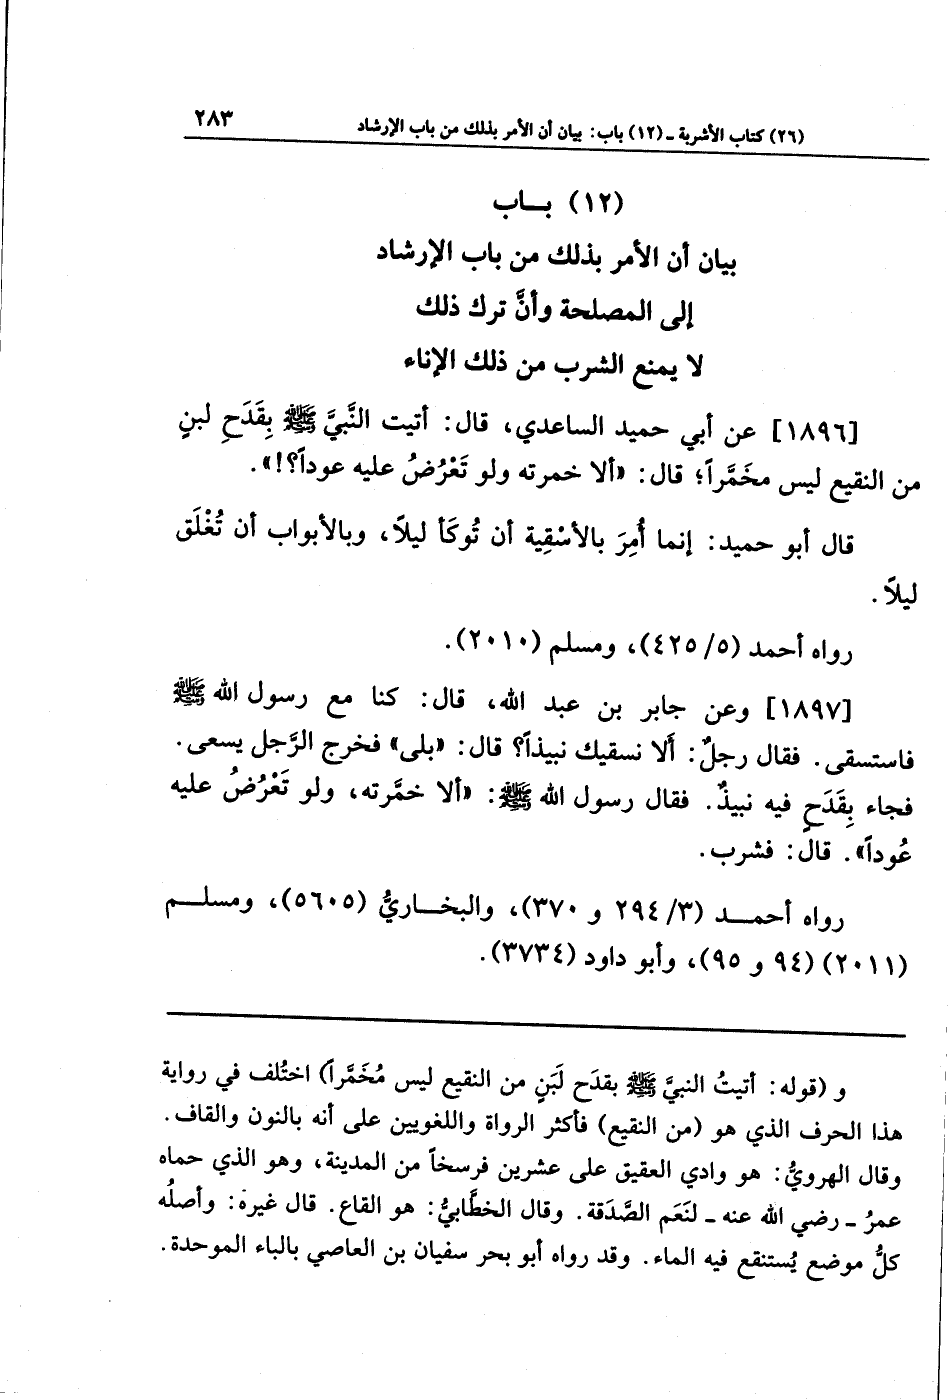 (٢٦) كتاب الأشربة ـ (١٢) باب: بيان أن الأمر بذلك من باب الإرشاد ٢٨٣
(١٢) بــاب
بيان أن الأمر بذلك من باب الإرشاد
إلى المصلحة وأنَّ ترك ذلك
لا يمنع الشرب من ذلك الإناء
[١٨٩٦] عن أبي حميد الساعدي، قال: أتيت النَّبيَّ ﷺ بِقَدَحِ لبنٍ
من النقيع ليس مخَمَّراً؛ قال: «ألا خمرته ولو تَعْرُضُ عليه عوداً؟!».
قال أبو حميد: إنما أُمِرَ بالأسْقِية أن تُوكَأ ليلاً، وبالأبواب أن تُغْلَق
ليلاً.
رواه أحمد (٥/ ٤٢٥)، ومسلم (٢٠١٠).
[١٨٩٧] وعن جابر بن عبد الله، قال: كنا مع رسول الله ﷺ
فاستسقى. فقال رجلٌ: أَلا نسقيك نبيذاً؟ قال: «بلى» فخرج الرَّجل يسعى.
فجاء بِقَدَحٍ فيه نبيذٌ. فقال رسول الله ﷺ: «ألا خمَّرته، ولو تَعْرُضُ عليه
عُوداً». قال: فشرب.
رواه أحمــد (٣/ ٢٩٤ و ٣٧٠)، والبخــاريُّ (٥٦٠٥)، ومسلــم
(٢٠١١) (٩٤ و ٩٥)، وأبو داود (٣٧٣٤).
و (قوله: أتيتُ النبيَّ ﷺ بقدَح لَبَنٍ من النقيع ليس مُخَمَّراً) اختُلف في رواية
هذا الحرف الذي هو (من النقيع) فأكثر الرواة واللغويين على أنه بالنون والقاف.
وقال الهرويُّ: هو وادي العقيق على عشرين فرسخاً من المدينة، وهو الذي حماه
عمرُ ـ رضي الله عنه ـ لنَعَم الصَّدَقة. وقال الخطَّابيُّ: هو القاع. قال غيره: وأصلُه
كلُّ موضع يُستنقع فيه الماء. وقد رواه أبو بحر سفيان بن العاصي بالباء الموحدة.